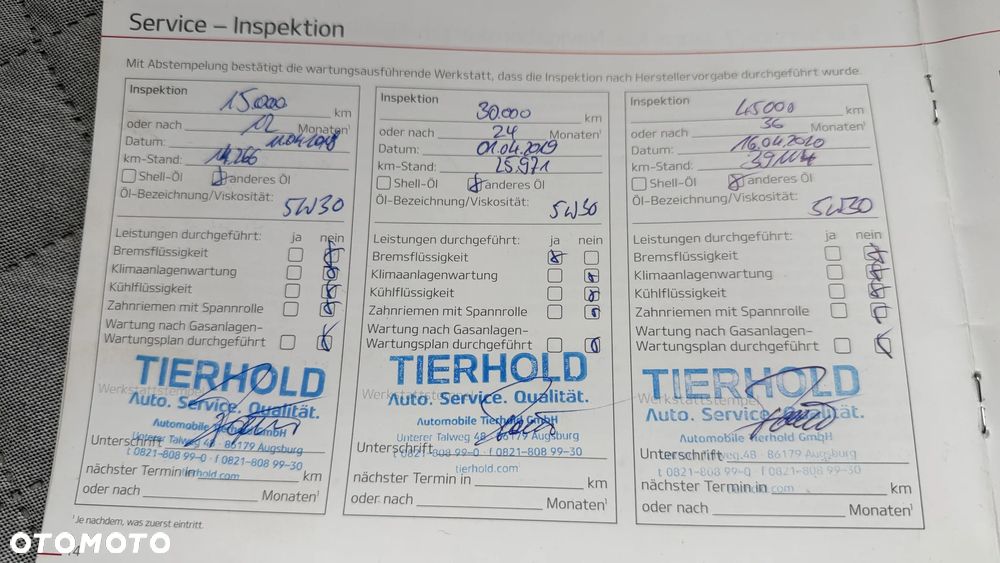 Service – Inspektion
Mit Abstempelung bestätigt die wartungsausführende Werkstatt, dass die Inspektion nach Herstellervorgabe durchgeführt wurde.
Inspektion 15.000 km
oder nach 12 Monaten¹
Datum: 11.04.2018
km-Stand: 14.266
Shell-Öl anderes Öl
Öl-Bezeichnung/Viskosität:
5W30
Leistungen durchgeführt: ja nein
Bremsflüssigkeit
Klimaanlagenwartung
Kühlflüssigkeit
Zahnriemen mit Spannrolle
Wartung nach Gasanlagen-
Wartungsplan durchgeführt
TIERHOLD
Werkstattstempel
Auto. Service. Qualität.
Automobile Tierhold GmbH
Unterer Talweg 48 · 86179 Augsburg
Unterschrift
t 0821-808 99-0 · f 0821-808 99-30
tierhold.com
nächster Termin in km
oder nach Monaten¹
Inspektion 30.000 km
oder nach 24 Monaten¹
Datum: 01.04.2019
km-Stand: 25.971
Shell-Öl anderes Öl
Öl-Bezeichnung/Viskosität:
5W30
Leistungen durchgeführt: ja nein
Bremsflüssigkeit
Klimaanlagenwartung
Kühlflüssigkeit
Zahnriemen mit Spannrolle
Wartung nach Gasanlagen-
Wartungsplan durchgeführt
TIERHOLD
Werkstattstempel
Auto. Service. Qualität.
Automobile Tierhold GmbH
Unterer Talweg 48 · 86179 Augsburg
Unterschrift
t 0821-808 99-0 · f 0821-808 99-30
tierhold.com
nächster Termin in km
oder nach Monaten¹
Inspektion 45000 km
oder nach 36 Monaten¹
Datum: 16.04.2020
km-Stand:
Shell-Öl anderes Öl
Öl-Bezeichnung/Viskosität:
5W30
Leistungen durchgeführt: ja nein
Bremsflüssigkeit
Klimaanlagenwartung
Kühlflüssigkeit
Zahnriemen mit Spannrolle
Wartung nach Gasanlagen-
Wartungsplan durchgeführt
TIERHOLD
Werkstattstempel
Auto. Service. Qualität.
Automobile Tierhold GmbH
Unterer Talweg 48 · 86179 Augsburg
Unterschrift
t 0821-808 99-0 · f 0821-808 99-30
tierhold.com
nächster Termin in km
oder nach Monaten¹
¹ Je nachdem, was zuerst eintritt.
OTOMOTO